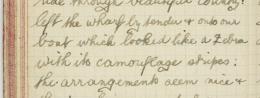 ride through beautiful country.
left the wharf by tender & onto our
boat which looked like a Zebra
with its camouflage stripes.
the arrangements seem nice &